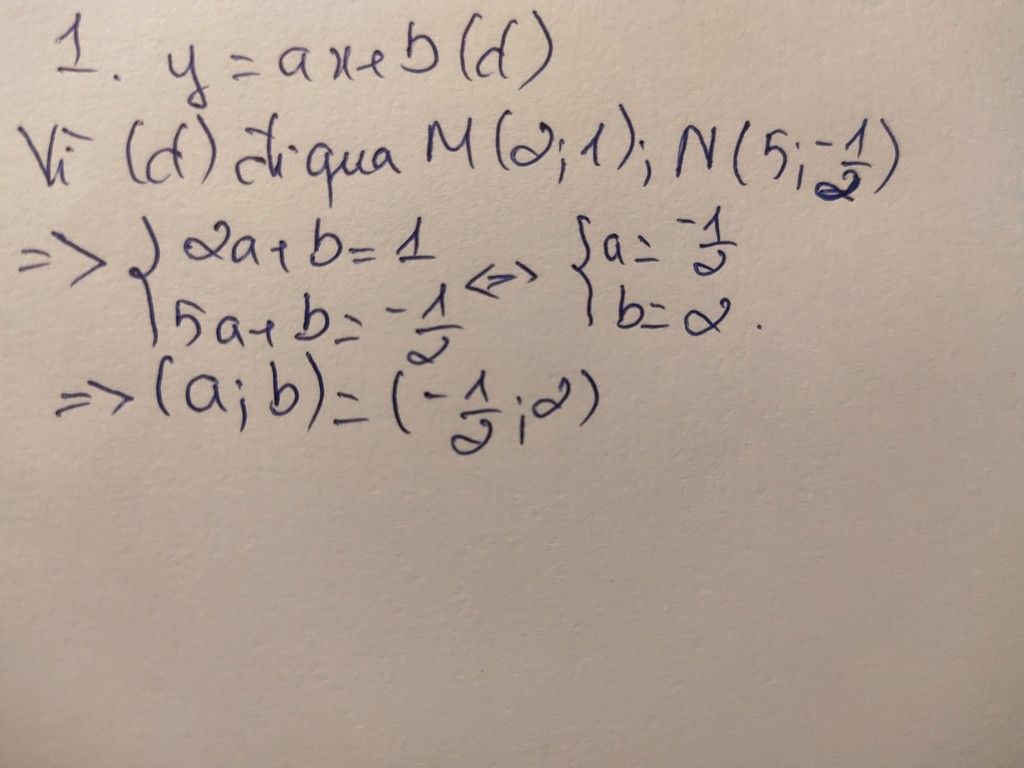 1. y = ax + b (d)
Vì (d) đi qua M(2;1); N(5; -1/2)
=> { 2a + b = 1 <=> { a = -1/2
5a + b = -1/2 b = 2.
=> (a; b) = (-1/2; 2)